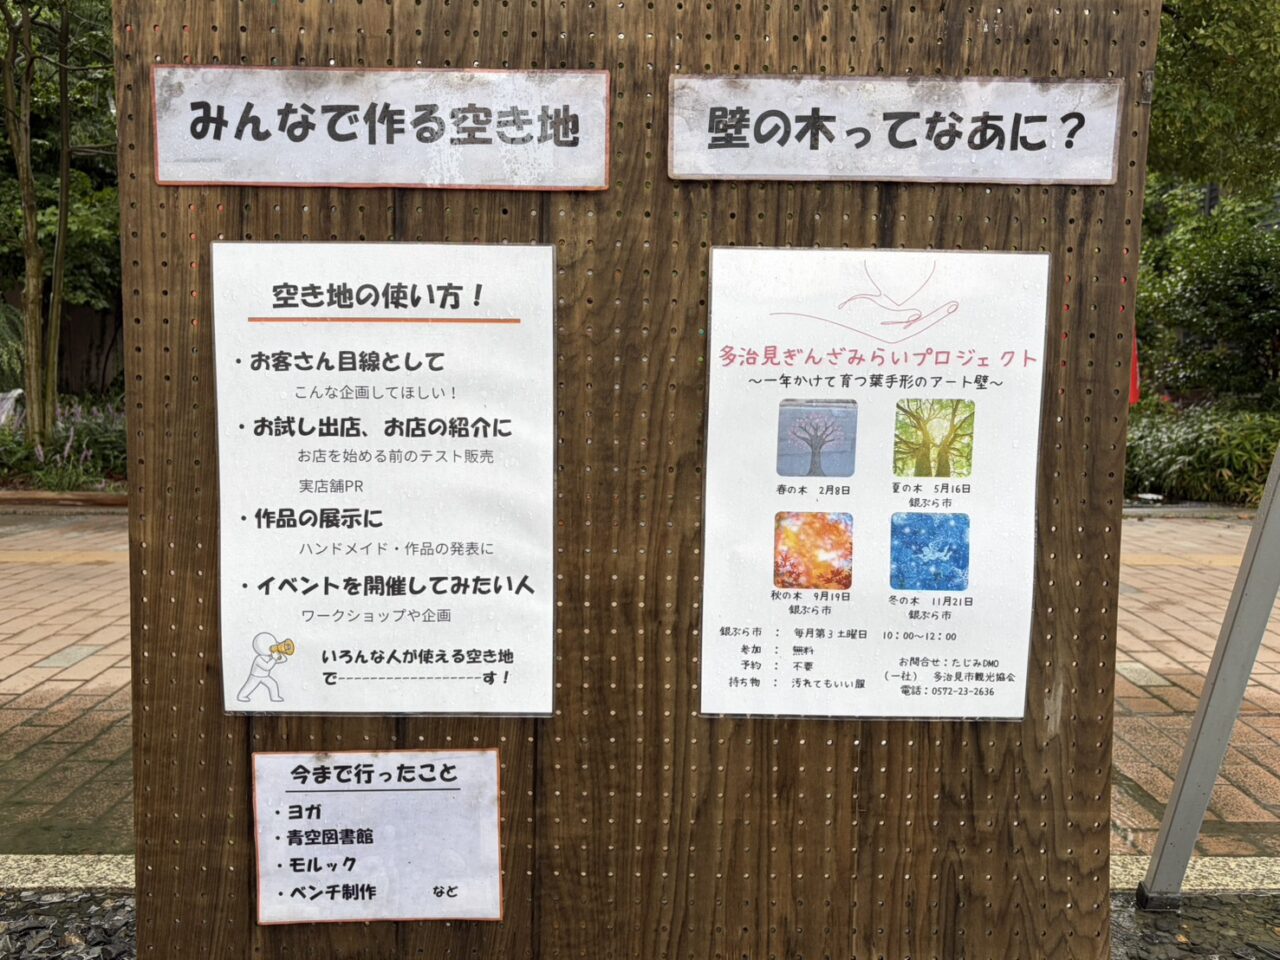 みんなで作る空き地
空き地の使い方！
・お客さん目線として
こんな企画してほしい！
・お試し出店、お店の紹介に
お店を始める前のテスト販売
実店舗PR
・作品の展示に
ハンドメイド・作品の発表に
・イベントを開催してみたい人
ワークショップや企画
いろんな人が使える空き地
で------------------す！
今まで行ったこと
・ヨガ
・青空図書館
・モルック
・ベンチ制作 など
壁の木ってなあに？
多治見ぎんざみらいプロジェクト
〜一年かけて育つ葉手形のアート壁〜
春の木 2月8日
夏の木 5月16日
銀ぶら市
秋の木 9月19日
銀ぶら市
冬の木 11月21日
銀ぶら市
銀ぶら市 ： 毎月第3土曜日 10：00〜12：00
参加 ： 無料
予約 ： 不要
持ち物 ： 汚れてもいい服
お問合せ：たじみDMO
（一社） 多治見市観光協会
電話：0572-23-2636